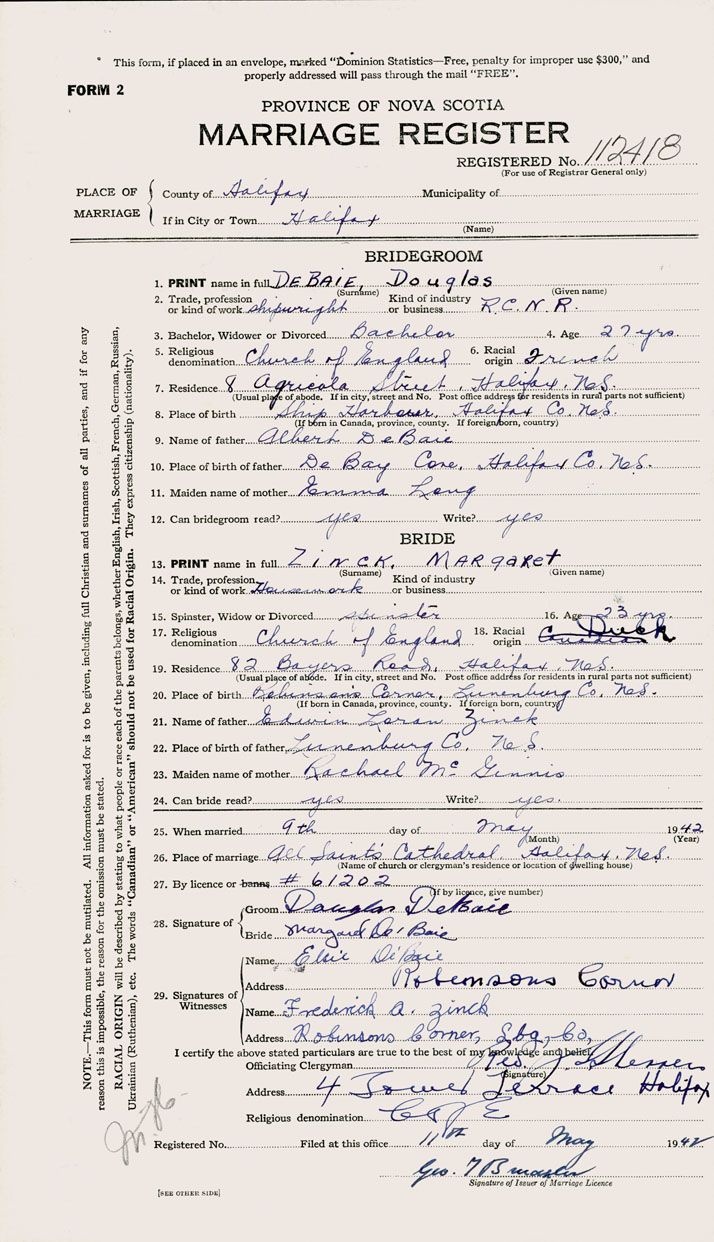 * This form, if placed in an envelope, marked "Dominion Statistics—Free, penalty for improper use $300," and
properly addressed will pass through the mail "FREE".
FORM 2
PROVINCE OF NOVA SCOTIA
MARRIAGE REGISTER
REGISTERED No. 112418
(For use of Registrar General only)
PLACE OF MARRIAGE
County of Halifax Municipality of
If in City or Town Halifax
(Name)
BRIDEGROOM
1. PRINT name in full DEBAIE, Douglas
(Surname) (Given name)
2. Trade, profession or kind of work shipwright Kind of industry or business R.C.N.R.
3. Bachelor, Widower or Divorced Bachelor 4. Age 27 yrs.
5. Religious denomination Church of England 6. Racial origin French
7. Residence 8 Agricola Street, Halifax, N.S.
(Usual place of abode. If in city, street and No. Post office address for residents in rural parts not sufficient)
8. Place of birth Ship Harbour, Halifax Co. N.S.
(If born in Canada, province, county. If foreign born, country)
9. Name of father Albert DeBaie
10. Place of birth of father De Bay Cove, Halifax Co. N.S.
11. Maiden name of mother Emma Long
12. Can bridegroom read? yes Write? yes
BRIDE
13. PRINT name in full ZINCK, MARGARet
(Surname) (Given name)
14. Trade, profession or kind of work Housework Kind of industry or business
15. Spinster, Widow or Divorced spinster 16. Age 23 yrs.
17. Religious denomination Church of England 18. Racial origin Canadian Duck
19. Residence 82 Bayers Road, Halifax, N.S.
(Usual place of abode. If in city, street and No. Post office address for residents in rural parts not sufficient)
20. Place of birth Robinson's Corner, Lunenburg Co. N.S.
(If born in Canada, province, county. If foreign born, country)
21. Name of father Edwin Loran Zinck
22. Place of birth of father Lunenburg Co. N.S.
23. Maiden name of mother Rachael McGinnis
24. Can bride read? yes Write? yes.
25. When married 9th day of May 1942
(Month) (Year)
26. Place of marriage All Saint's Cathedral, Halifax, N.S.
(Name of church or clergyman's residence or location of dwelling house)
27. By licence or banns # 61202
(If by licence, give number)
28. Signature of
Groom Douglas DeBaie
Bride Margaret De'Baie
29. Signatures of Witnesses
Name Elsie De'Baie
Address Robinsons Cornor
Name Frederick A. Zinck
Address Robinsons Corner, Lbg, Co,
I certify the above stated particulars are true to the best of my knowledge and belief.
Officiating Clergyman
(Signature)
Address 4 Tower Terrace Halifax
Religious denomination C of E
Registered No. Filed at this office 11th day of May 1942
Geo.
Signature of Issuer of Marriage Licence
[SEE OTHER SIDE]
NOTE.—This form must not be mutilated. All information asked for is to be given, including full Christian and surnames of all parties, and if for any
reason this is impossible, the reason for the omission must be stated.
RACIAL ORIGIN will be described by stating to what people or race each of the parents belongs, whether English, Irish, Scottish, French, German, Russian,
Ukrainian (Ruthenian), etc. The words "Canadian" or "American" should not be used for Racial Origin. They express citizenship (nationality).